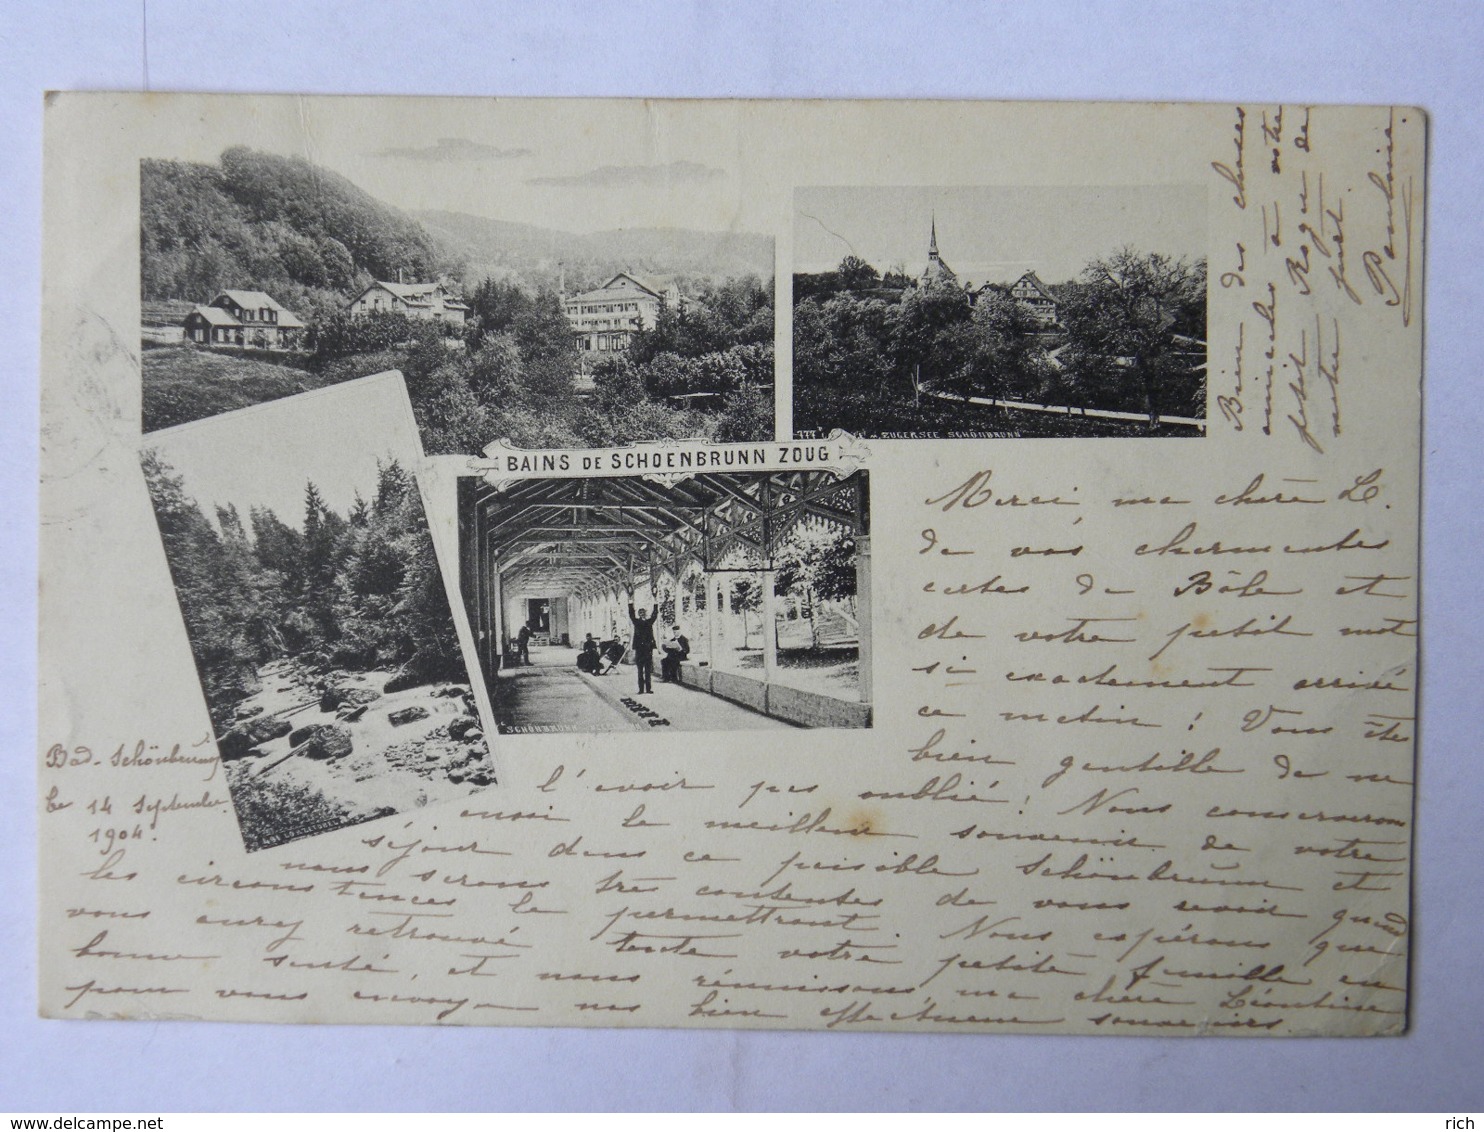 BAINS DE SCHOENBRUNN ZOUG
ZUGERSEE SCHÖNBRUNN
SCHÖNBRUNN
Bad-Schönbrunn
le 14 Septembre
1904.
Merci, ma chère L.
de vos charmantes
cartes de Bâle et
de votre petit mot
si exactement arrivé
ce matin! Vous êtes
bien gentille de ne
l'avoir pas oublié! Nous conserverons
aussi le meilleur souvenir de votre
séjour dans ce paisible Schönbrunn et
nous serons très contentes de vous revoir quand
les circonstances le permettront. Nous espérons que
vous aurez retrouvé toute votre petite famille en
bonne santé, et nous réunissons, ma chère Léontine
pour vous envoyer nos bien affectueux souvenirs.
Bien des choses
amicales à votre
petit Roger de
notre part.
Pauline.
delcampe.net
rich